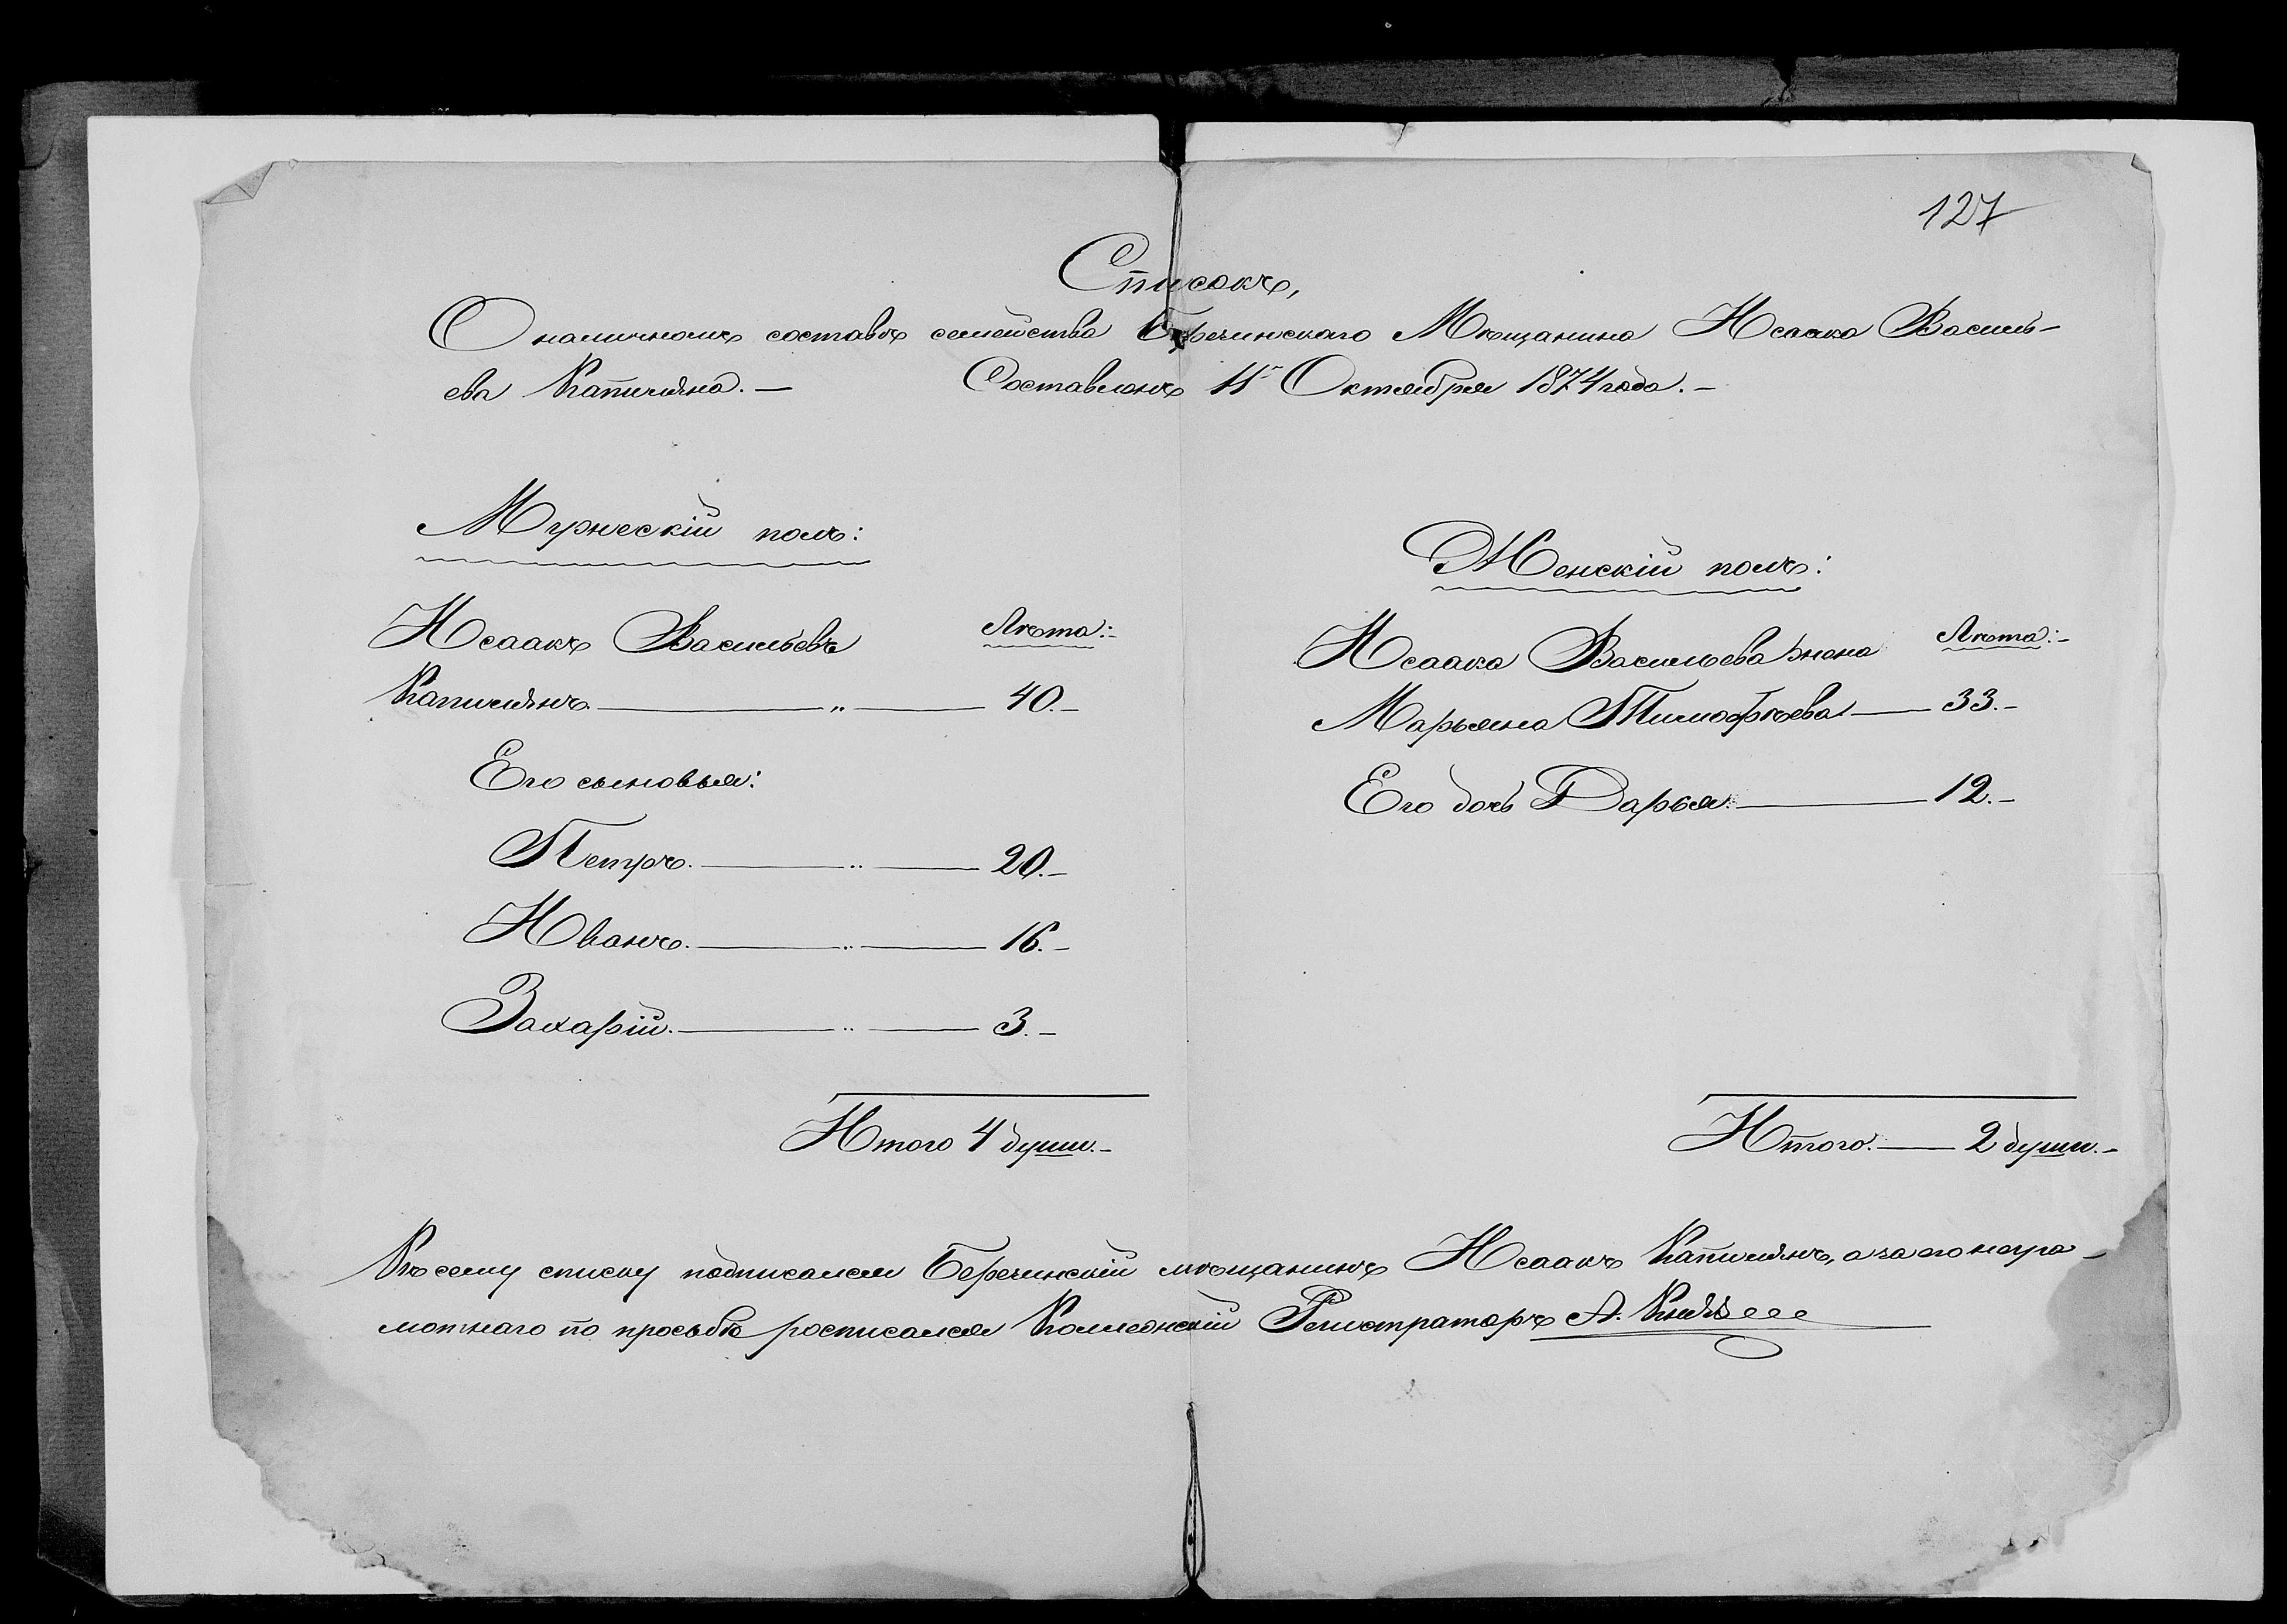 127
Списокъ,
О наличномъ составѣ семейства Беречинскаго Мѣщанина Исаака Василь-
ева Капшеяна. — Составленъ 11го Октября 1874 года. —
Мужескій полъ:
Исаакъ Васильевъ Лѣта:-
„ 40.-
Его сыновья:
Петръ. „ 20.-
Иванъ. „ 16.-
Захарій. „ 3.-
Итого 4 души.-
Женскій полъ:
Исаака Васильева жена Лѣта:-
Марьяна Тимофѣева 33.-
Его дочь Дарья. 12.-
Итого. 2 души.-
Къ сему списку подписался Беречинскій мѣщанинъ Исаакъ а за его негра-
мотнаго по просьбѣ росписался Коллежскій Регистраторъ А.